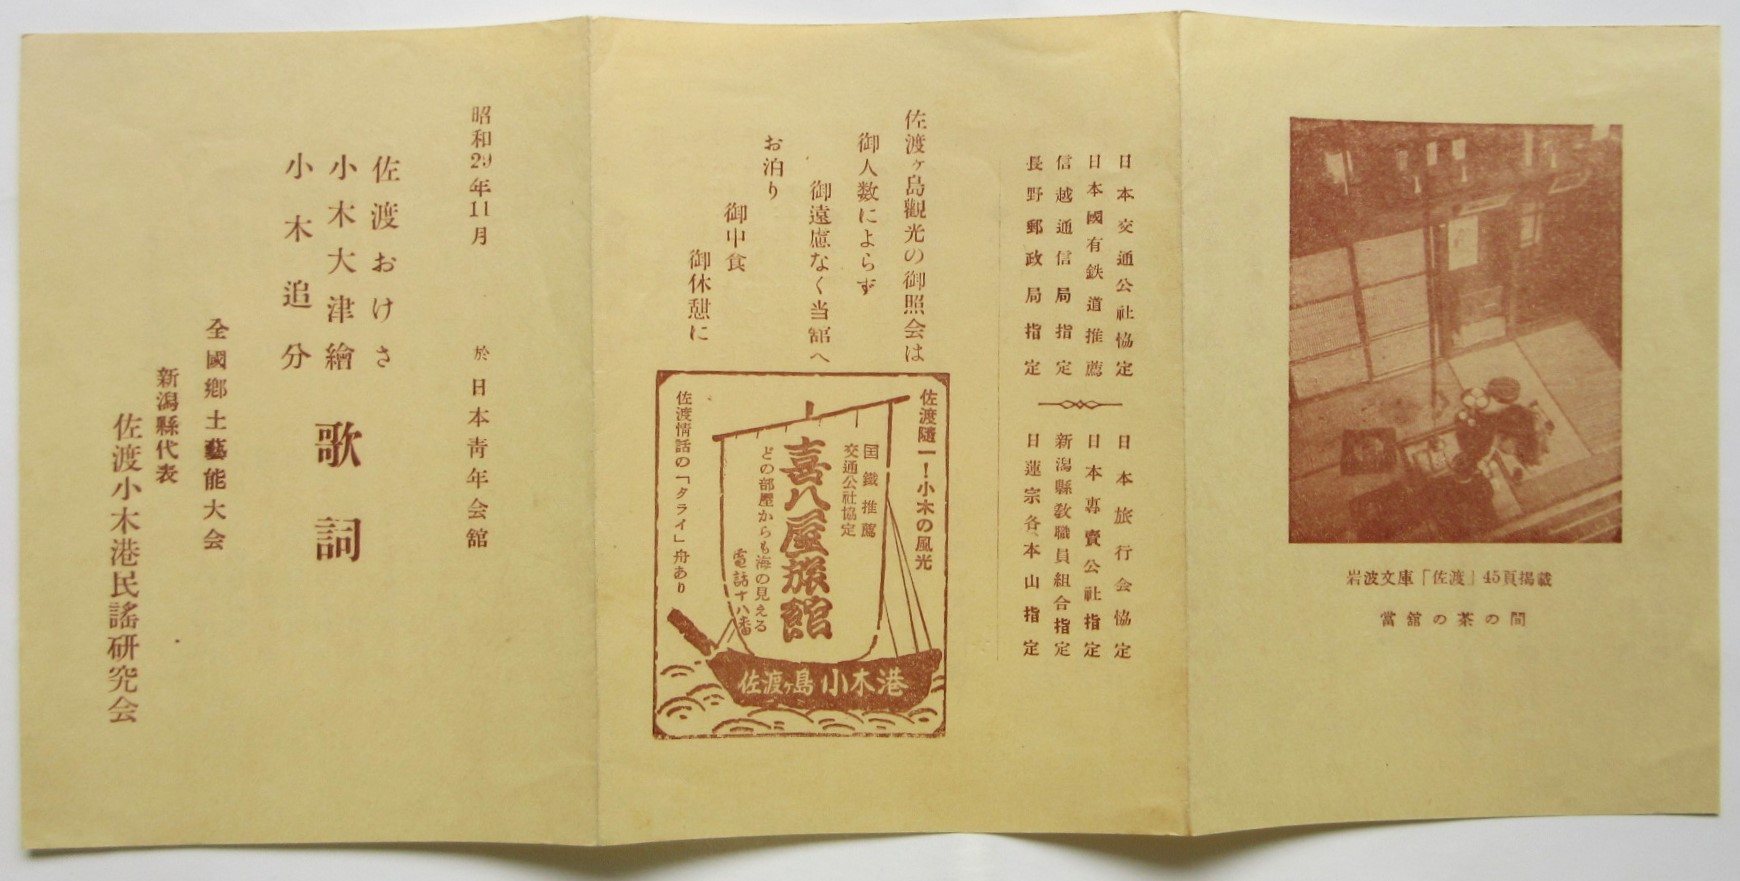 岩波文庫「佐渡」45頁掲載
當舘の茶の間
日本交通公社協定
日本國有鉄道推薦
信越通信局指定
長野郵政局指定
日本旅行会協定
日本専賣公社指定
新潟縣教職員組合指定
日蓮宗各本山指定
佐渡ヶ島觀光の御照会は
御人数によらず
御遠慮なく当舘へ
お泊り
御中食
御休憩に
佐渡隨一!小木の風光
国鐵推薦
交通公社協定
喜八屋旅館
どの部屋からも海の見える
電話十八番
佐渡情話の「タライ」舟あり
佐渡ヶ島 小木港
昭和29年11月
於 日本靑年会舘
佐渡おけさ
小木大津繪
小木追分
歌詞
全國鄕土藝能大会
新潟縣代表
佐渡小木港民謠研究会